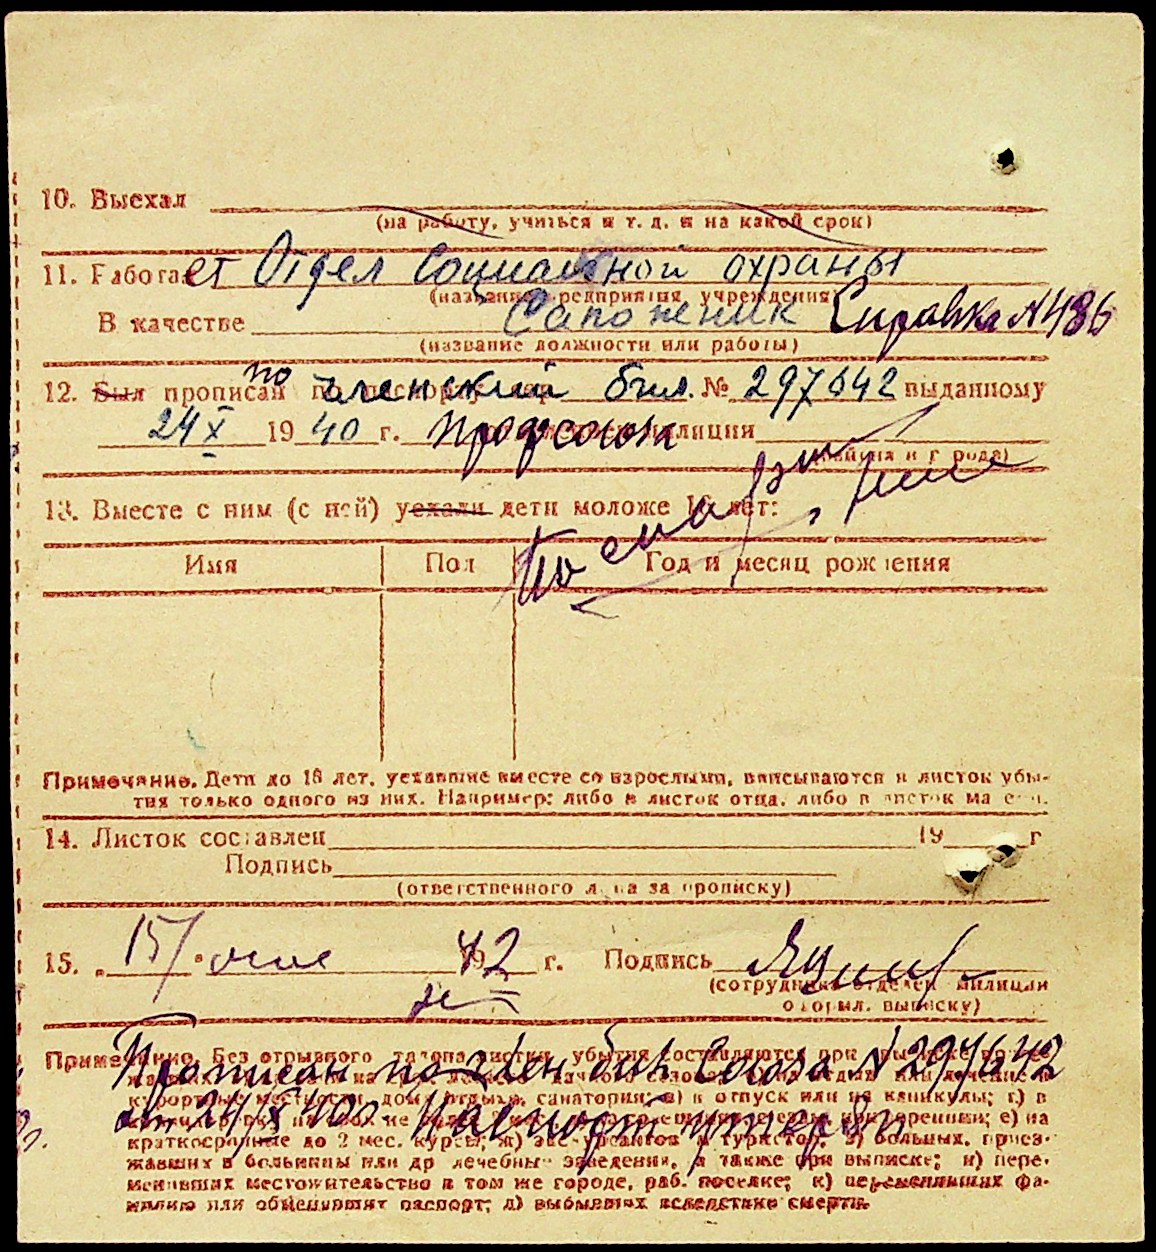 10. Выехал
(на работу, учиться и т. д. и на какой срок)
11. Работает Отдел Социальной охраны
(название предприятия учреждения)
В качестве Сапожник Справка №486
(название должности или работы)
12. Был прописан по членский бил. № 297642 выданному
24 X 1940 г. Профсоюж милиции
(района и г рода)
13. Вместе с ним (с ней) уехали дети моложе 16 лет:
Имя Пол Год и месяц рождения
Примечание. Дети до 16 лет, уехавшие вместе со взрослыми, вписываются в листок убы-
тия только одного из них. Например: либо в листок отца, либо в листок матери.
14. Листок составлен 19 г
Подпись
(ответственного лица за прописку)
15. 15/ 42 г. Подпись
(сотрудник отделен милиции
оформл. выписку)
Примечание. Без отрывного талона листки убытия составляются при
Прописан по член бил. Союза №297642
курортные местности, дома отдыха, санатории; в) в отпуск или на каникулы; г) в
от 24/X 40г. Паспорт утерян
краткосрочные до 2 мес. курсы; ж) экскурсантов и туристов; з) больных, приез-
жавших в больницы или др лечебные заведения, а также при выписке; и) пере-
менивших местожительство в том же городе, раб. поселке; к) переменивших фа-
милию или обменивших паспорт; л) выбывших вследствие смерти.